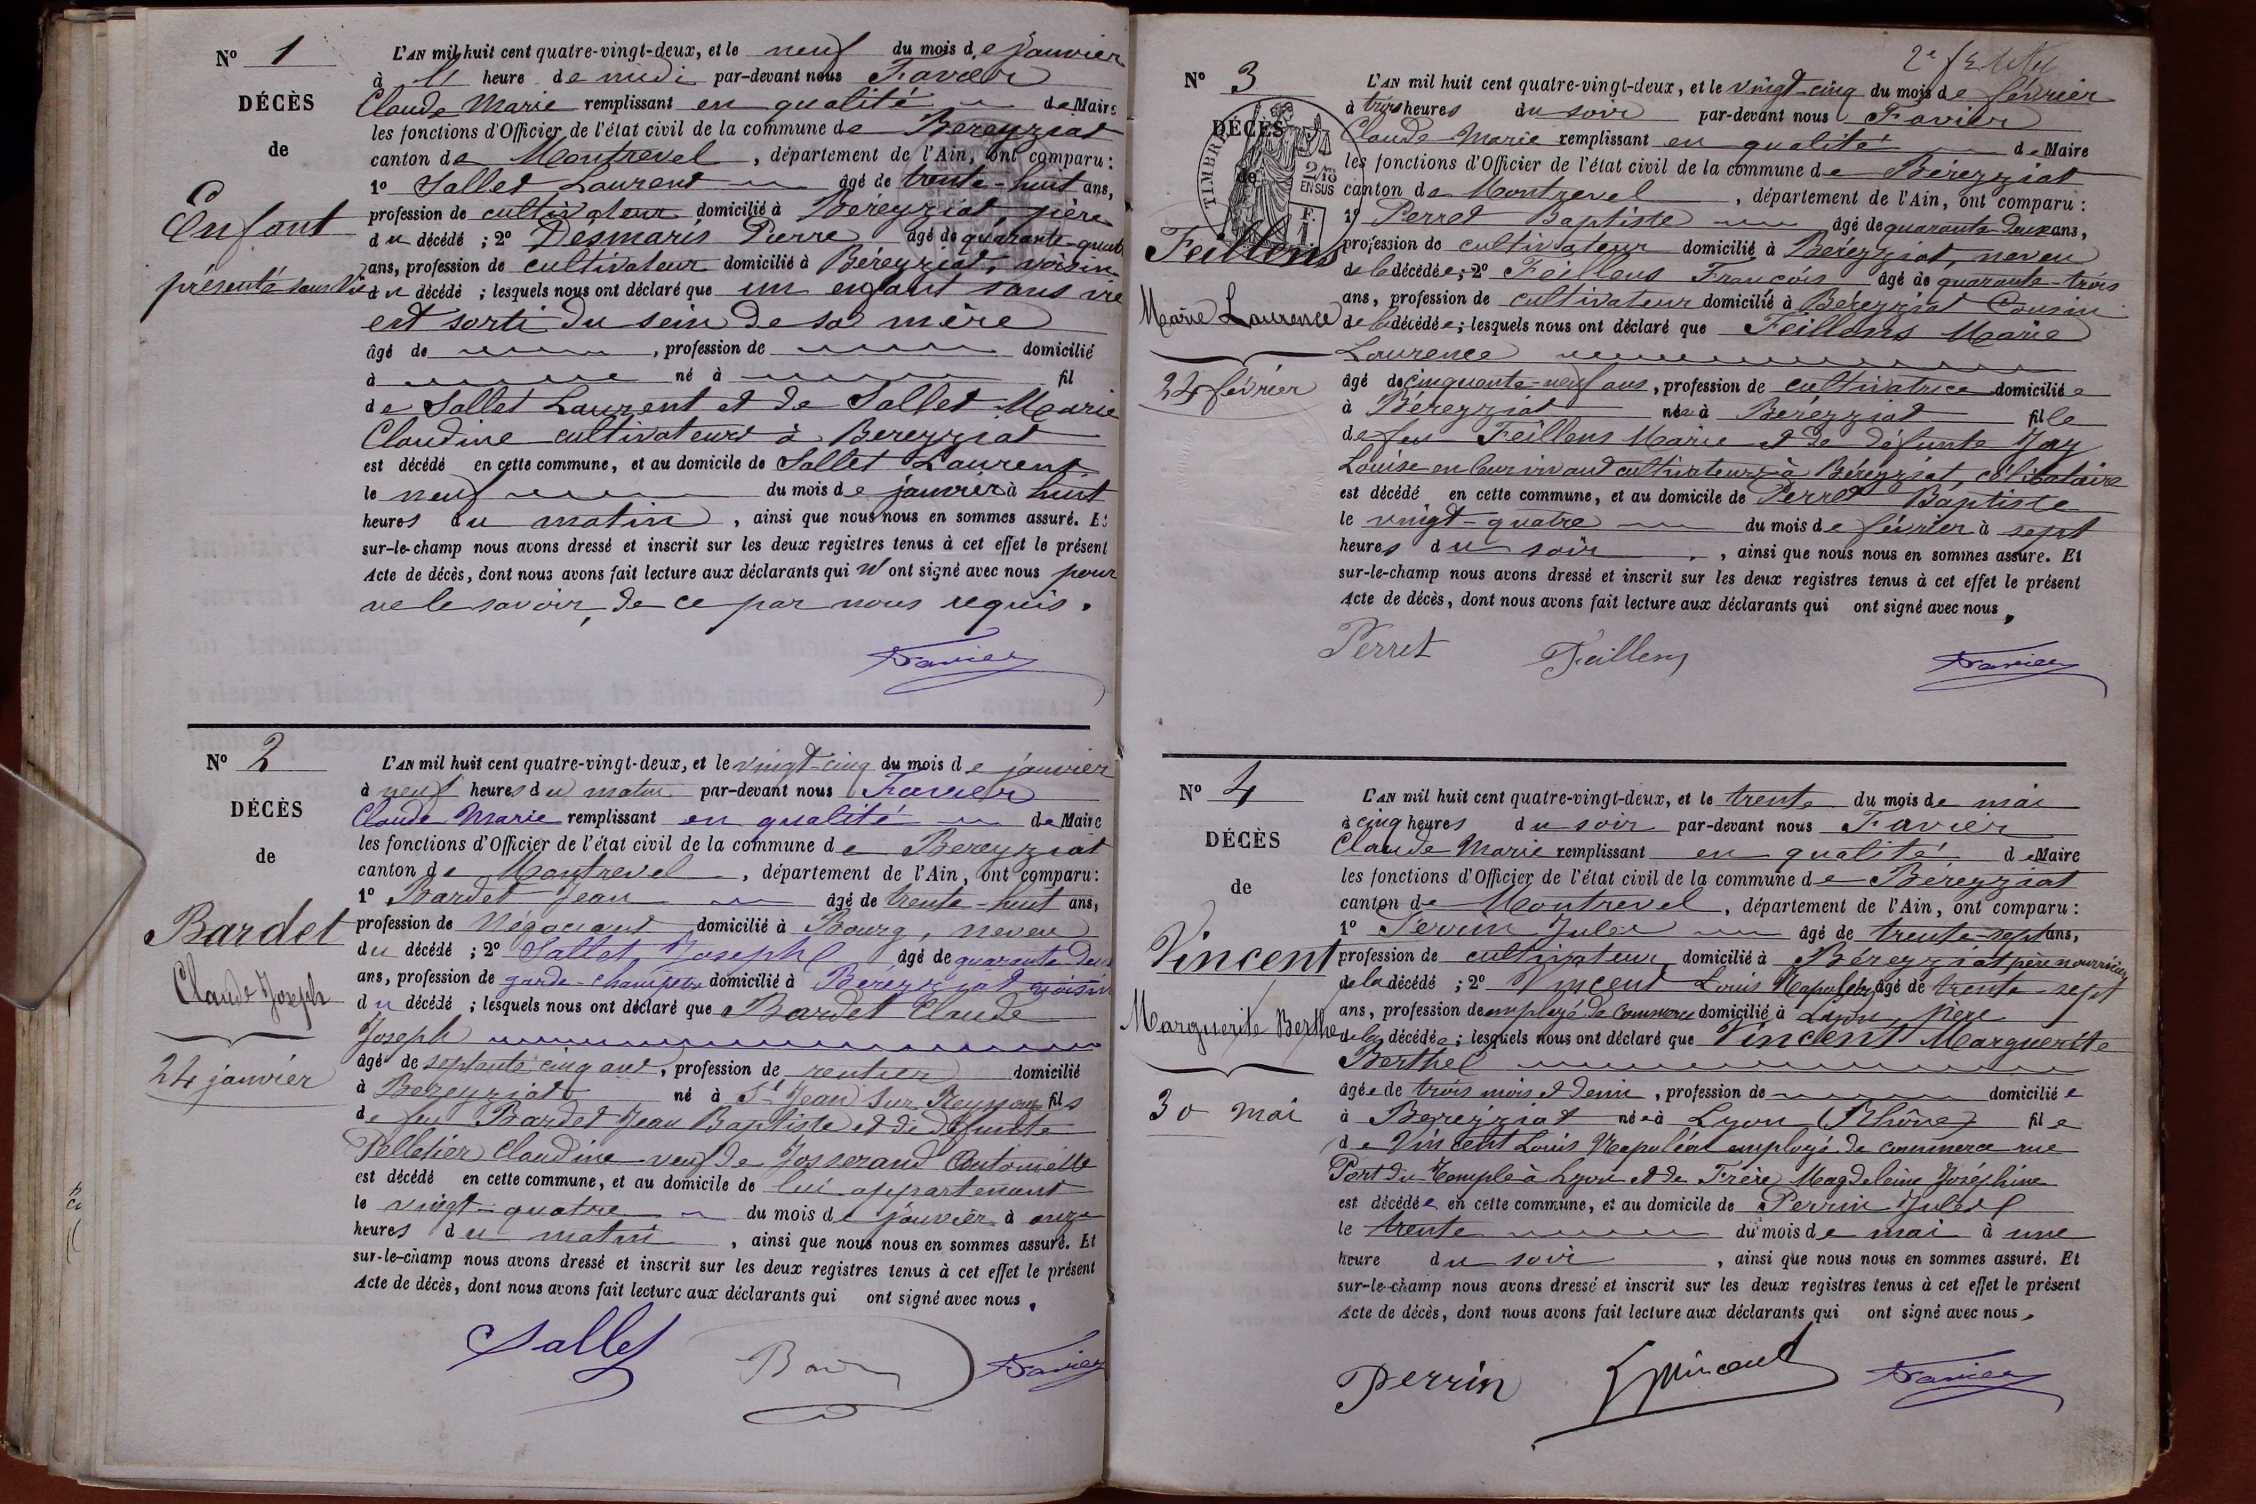 N° 1
DÉCÈS
de
Enfant
présenté sans vie
L'AN mil huit cent quatre-vingt-deux, et le neuf du mois de janvier
à heure de midi par-devant nous Favier
Claude Marie remplissant en qualité de Maire
les fonctions d'Officier de l'état civil de la commune de Béréyziat
canton de Montrevel, département de l'Ain, ont comparu :
1° Sallet Laurent âgé de trente-huit ans,
profession de cultivateur domicilié à Béréyziat, père
du décédé ; 2° Desmaris Pierre âgé de quarante-quatre
ans, profession de cultivateur domicilié à Béréyziat, voisin
du décédé ; lesquels nous ont déclaré que un enfant sans vie
est sorti du sein de sa mère
âgé de , profession de domicilié
à né à fil
de Sallet Laurent et de Sallet Marie
Claudine cultivateurs à Béréyziat
est décédé en cette commune, et au domicile de Sallet Laurent
le neuf du mois de janvier à huit
heures du matin, ainsi que nous nous en sommes assuré. Et
sur-le-champ nous avons dressé et inscrit sur les deux registres tenus à cet effet le présent
Acte de décès, dont nous avons fait lecture aux déclarants qui n'ont signé avec nous pour
ne le savoir, de ce par nous requis.
Favier
N° 2
DÉCÈS
de
Bardet
Claude Joseph
24 janvier
L'AN mil huit cent quatre-vingt-deux, et le vingt-cinq du mois de janvier
à neuf heures du matin par-devant nous Favier
Claude Marie remplissant en qualité de Maire
les fonctions d'Officier de l'état civil de la commune de Béréyziat
canton de Montrevel, département de l'Ain, ont comparu :
1° Bardet Jean âgé de trente-huit ans,
profession de Négociant domicilié à Bourg, neveu
du décédé ; 2° Sallet Joseph âgé de quarante deux
ans, profession de garde-champêtre domicilié à Béréyziat voisin
du décédé ; lesquels nous ont déclaré que Bardet Claude
Joseph
âgé de septante cinq ans, profession de rentier domicilié
à Béréyziat né à St Jean Sur Reyssouze fils
de feu Bardet Jean Baptiste et de défunte
Pelletier Claudine veuf de Josserand Antoinette
est décédé en cette commune, et au domicile de lui appartenant
le vingt-quatre du mois de janvier à onze
heures du matin, ainsi que nous nous en sommes assuré. Et
sur-le-champ nous avons dressé et inscrit sur les deux registres tenus à cet effet le présent
Acte de décès, dont nous avons fait lecture aux déclarants qui ont signé avec nous.
Sallet
Favier
2e
N° 3
DÉCÈS
de
TIMBRE
2/10
EN SUS
F.
Feillens
Marie Laurence
24 février
L'AN mil huit cent quatre-vingt-deux, et le vingt-cinq du mois de février
à trois heures du soir par-devant nous Favier
Claude Marie remplissant en qualité de Maire
les fonctions d'Officier de l'état civil de la commune de Béréyziat
canton de Montrevel, département de l'Ain, ont comparu :
1° Perret Baptiste âgé de quarante-deux ans,
profession de cultivateur domicilié à Béréyziat, neveu
de la décédée ; 2° Feillens François âgé de quarante-trois
ans, profession de cultivateur domicilié à Béréyziat Cousin
de la décédée ; lesquels nous ont déclaré que Feillens Marie
Laurence
âgé de cinquante-neuf ans, profession de cultivatrice domiciliée
à Béréyziat née à Béréyziat fille
de feu Feillens Marie et de défunte Jay
Louise en leur vivant cultivateurs à Béréyziat, célibataire
est décédé en cette commune, et au domicile de Perret Baptiste
le vingt-quatre du mois de février à sept
heures du soir, ainsi que nous nous en sommes assuré. Et
sur-le-champ nous avons dressé et inscrit sur les deux registres tenus à cet effet le présent
Acte de décès, dont nous avons fait lecture aux déclarants qui ont signé avec nous.
Perret Feillens Favier
N° 4
DÉCÈS
de
Vincent
Marguerite Berthe
30 mai
L'AN mil huit cent quatre-vingt-deux, et le trente du mois de mai
à cinq heures du soir par-devant nous Favier
Claude Marie remplissant en qualité de Maire
les fonctions d'Officier de l'état civil de la commune de Béréyziat
canton de Montrevel, département de l'Ain, ont comparu :
1° Perrin Jules âgé de trente-sept ans,
profession de cultivateur domicilié à Béréyziat père nourricier
de la décédé ; 2° Vincent Louis Napoléon âgé de trente-sept
ans, profession de employé de Commerce domicilié à Lyon, père
de la décédée ; lesquels nous ont déclaré que Vincent Marguerite
Berthe
âgée de trois mois et demi, profession de domiciliée
à Béréyziat née à Lyon (Rhône) file
de Vincent Louis Napoléon employé de commerce rue
Port du Temple à Lyon et de Frère Magdeleine Joséphine
est décédée en cette commune, et au domicile de Perrin Jules
le trente du mois de mai à une
heure du soir, ainsi que nous nous en sommes assuré. Et
sur-le-champ nous avons dressé et inscrit sur les deux registres tenus à cet effet le présent
Acte de décès, dont nous avons fait lecture aux déclarants qui ont signé avec nous.
Perrin Vincent Favier